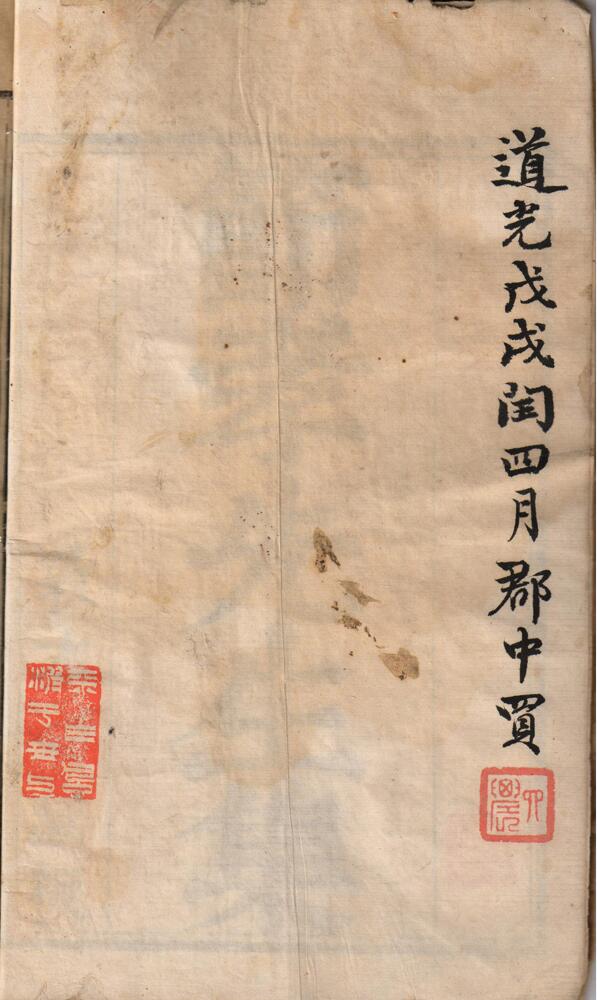 道光戊戌閏四月郡中買